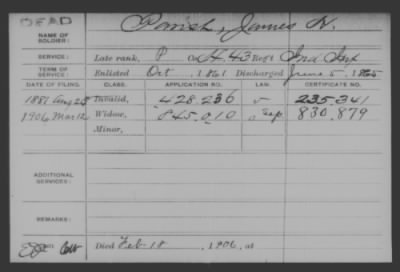 DEAD
NAME OF SOLDIER: Parish, James N.
SERVICE: Late rank, P Co. H, 43 Reg't Ind Inf
TERM OF SERVICE: Enlisted Oct , 1861 Discharged June 5, 1865
DATE OF FILING. CLASS. APPLICATION NO. LAW. CERTIFICATE NO.
1881 Aug 28 Invalid, 428.236 235.341
1906 Mar 12 Widow, 845.010 830.879
Minor,
ADDITIONAL SERVICES:
REMARKS:
Died Feb 18, 1906, at